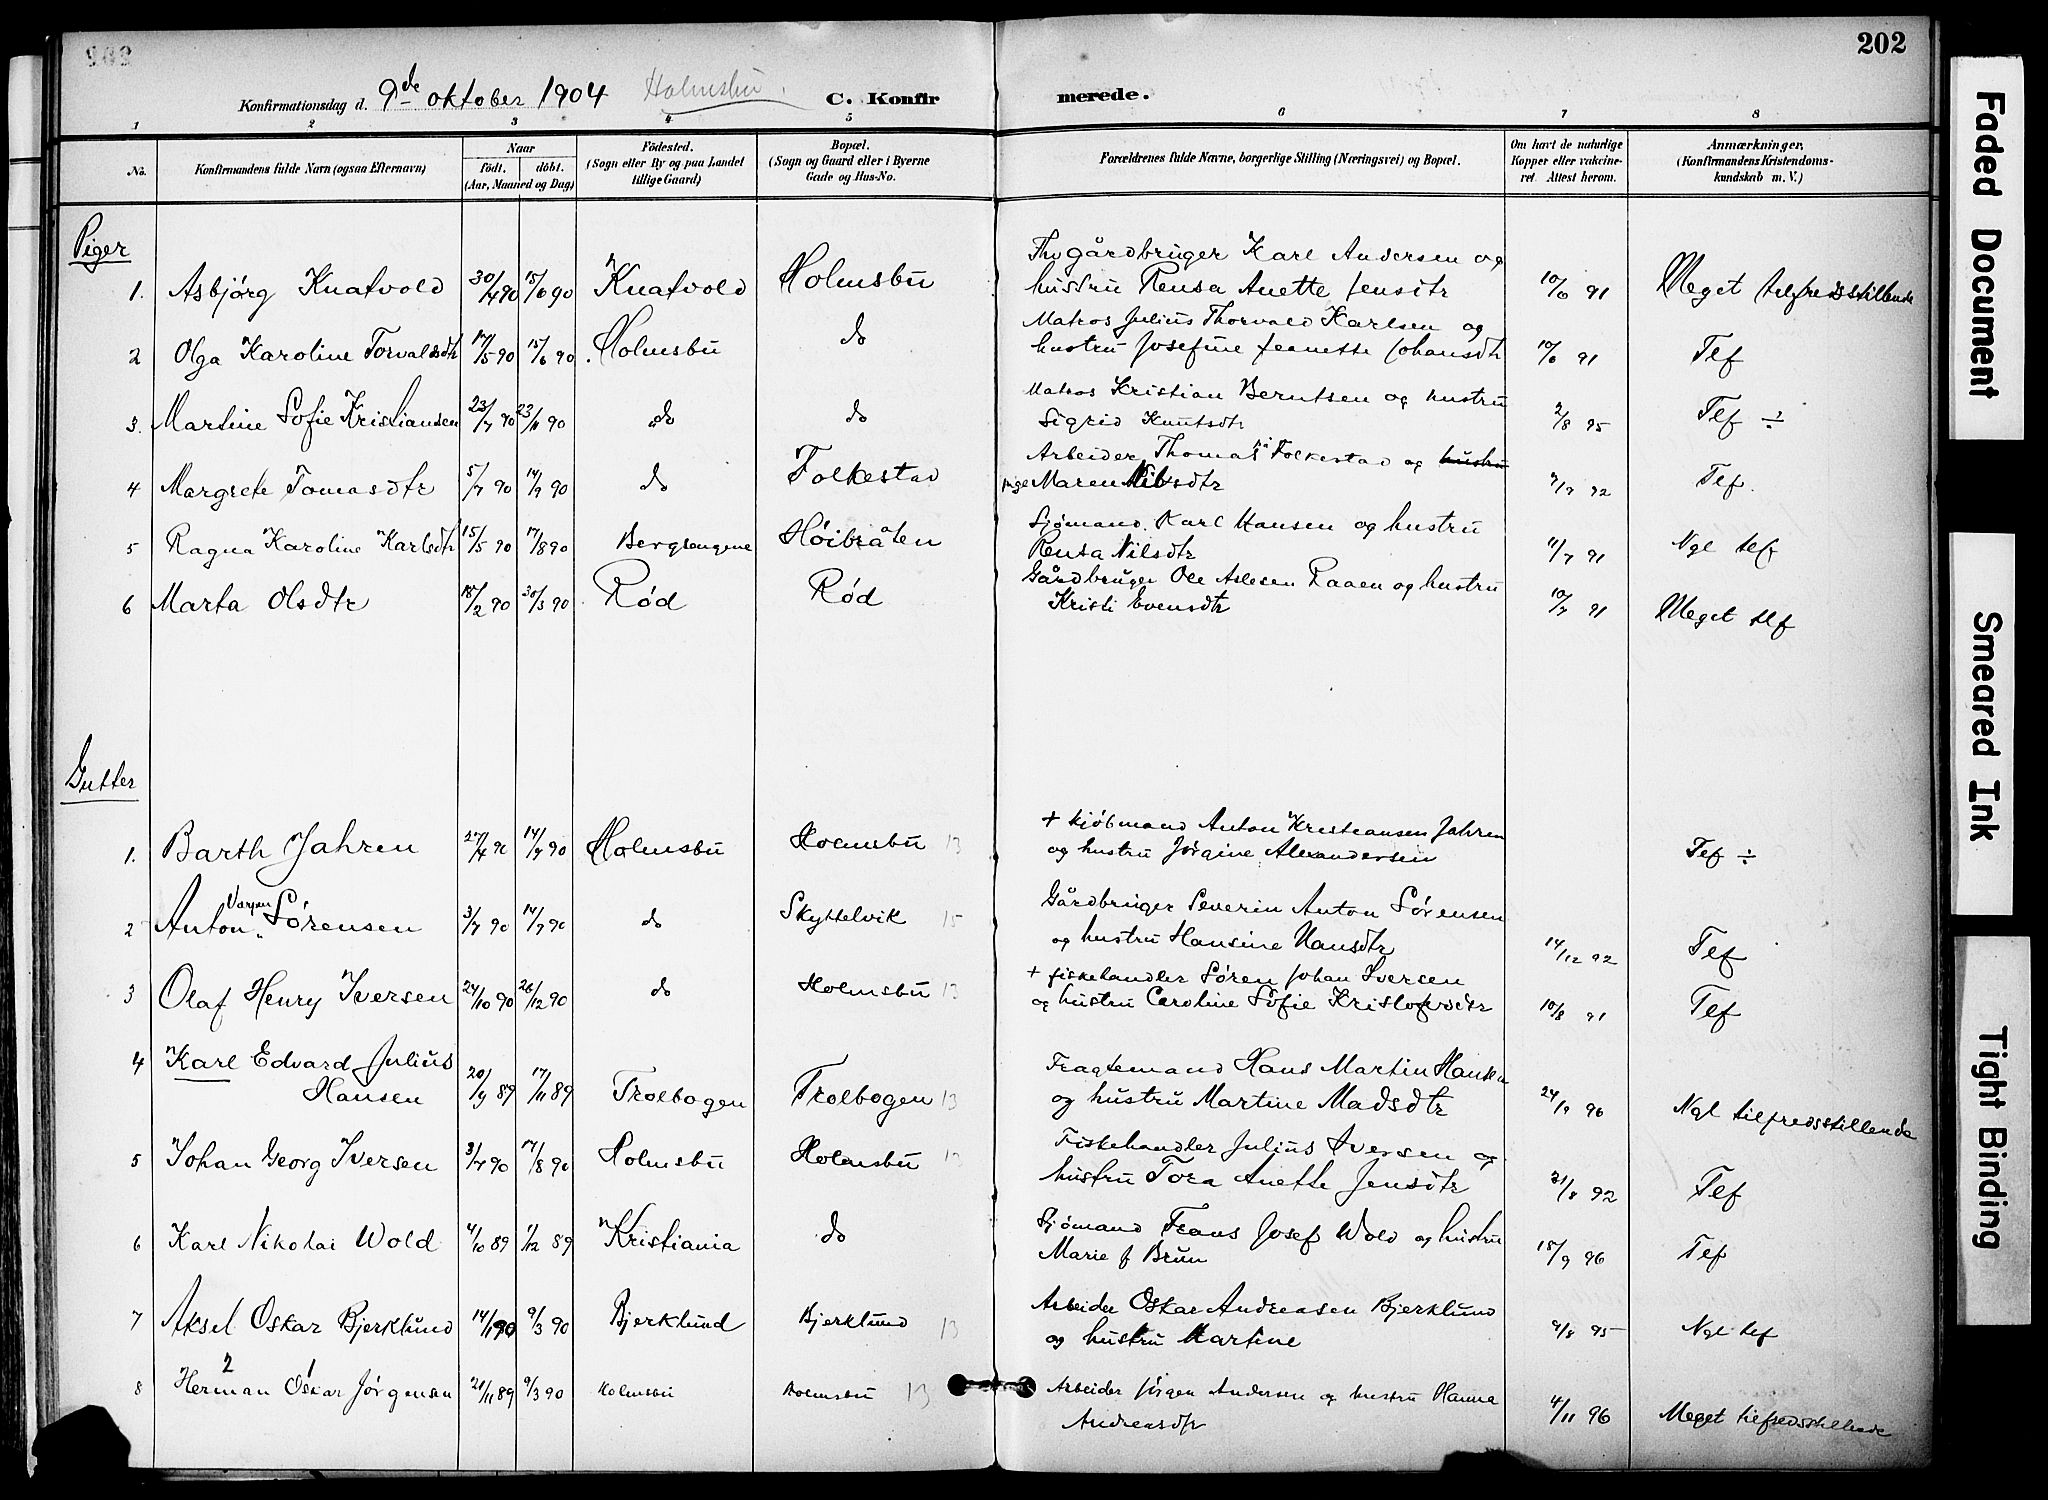 202
202
Konfirmationsdag d. 9de oktober 1904 Holmsbu. C. Konfir merede.
1 2 3 4 5 6 7 8
No. Konfirmandens fulde Navn (ogsaa Efternavn) Naar Födt. döbt. (Aar, Maaned og Dag) Födested. (Sogn eller By og paa Landet tillige Gaard) Bopæl. (Sogn og Gaard eller i Byerne Gade og Hus-No. Forældrenes fulde Navne, borgerlige Stilling (Næringsvei) og Bopæl. Om havt de naturlige Kopper eller vakcineret. Attest herom. Anmærkninger. (Konfirmandens Kristendomskundskab m. V.)
Piger
gårdbruger Karl Andersen og
1. Asbjörg Knatvold 30/4 90 15/6 90 Knatvold Holmsbu hustru Rensa Anette Jensdtr 10/6 91 Meget tilfredsstillende
Matros Julius Thorvald Karlsen og
2 Olga Karoline Torvaldsdtr 17/5 90 15/6 90 Holmsbu do hustru Josefine Jeanette Johansdtr 10/6 91 Tef
Matros Kristian Berntsen og hustru
3. Martine Sofie Kristiansen 23/7 90 23/11 90 do do Sigrid Knutsdtr 2/8 95 Tef ÷
Arbeider Thomas Folkestad og hustru
4 Margrete Tomasdtr 5/7 90 14/9 90 do Folkestad pige Maren Nilsdtr 92 Tef.
Sjömand Karl Hansen og hustru
5 Ragna Karoline Karlsdtr 15/5 90 17/8 90 Bergsengene Höibråten Rensa Nilsdtr 11/7 91 Ngl tef
Gårdbruger Ole Aslesen Raaen og hustru
6 Marta Olsdtr 18/2 90 30/3 90 Rød Rød Kristi Evensdtr 10/7 91 Meget tef
Gutter
+ kjöbmand Anton Kristiansen Jahren
1. Barth Jahren 27/4 90 14/7 90 Holmsbu Holmsbu 13 og hustru Jörgine Alexandersen Tef ÷
Gårdbruger Severin Anton Sörensen
2 Anton Sörensen 3/7 90 14/7 90 do Skyttelvik 15 og hustru Hansine Hansdtr 14/12 92 Tef
+ fiskehandler Sören Johan Iversen
3 Olaf Henry Iversen 24/10 90 26/12 90 do Holmsbu 13 og hustru Caroline Sofie Kristofersdtr 10/8 91 Tef
4 Karl Edvard Julius Fragtemand Hans Martin Hansen
Hansen 20/9 89 17/11 89 Trolbogen Trolbogen 13 og hustru Martine Madsdtr 24/9 96 Ngl tilfredsstillende
Fiskehandler Julius Iversen og
5 Johan Georg Iversen 3/7 90 17/8 90 Holmsbu Holmsbu 13 hustru Tora Anette Jensdtr 21/8 92 Tef
Sjömand Frans Josef Wold og hustru
6 Karl Nikolai Wold 4/10 89 1/12 89 Kristiania do Marie f Brun 18/9 96 Tef
Arbeider Oskar Andreasen Bjerklund
7 Aksel Oskar Bjerklund 14/1 90 9/3 90 Bjerklund Bjerklund 13 og hustru Martine 9/8 95 Ngl tef
2 1
8 Herman Oskar Jörgensen 21/11 89 9/3 90 Holmsbu Holmsbu 13 Arbeider Jörgen Andersen og hustru Hanna
Andreasdtr 4/11 96 Meget tilfredsstillende
Faded Document
Smeared Ink
Tight Binding